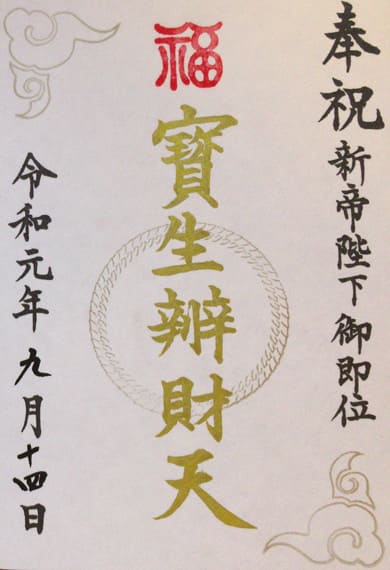 奉祝新帝陛下御即位
福
寶生辨財天
令和元年九月十四日